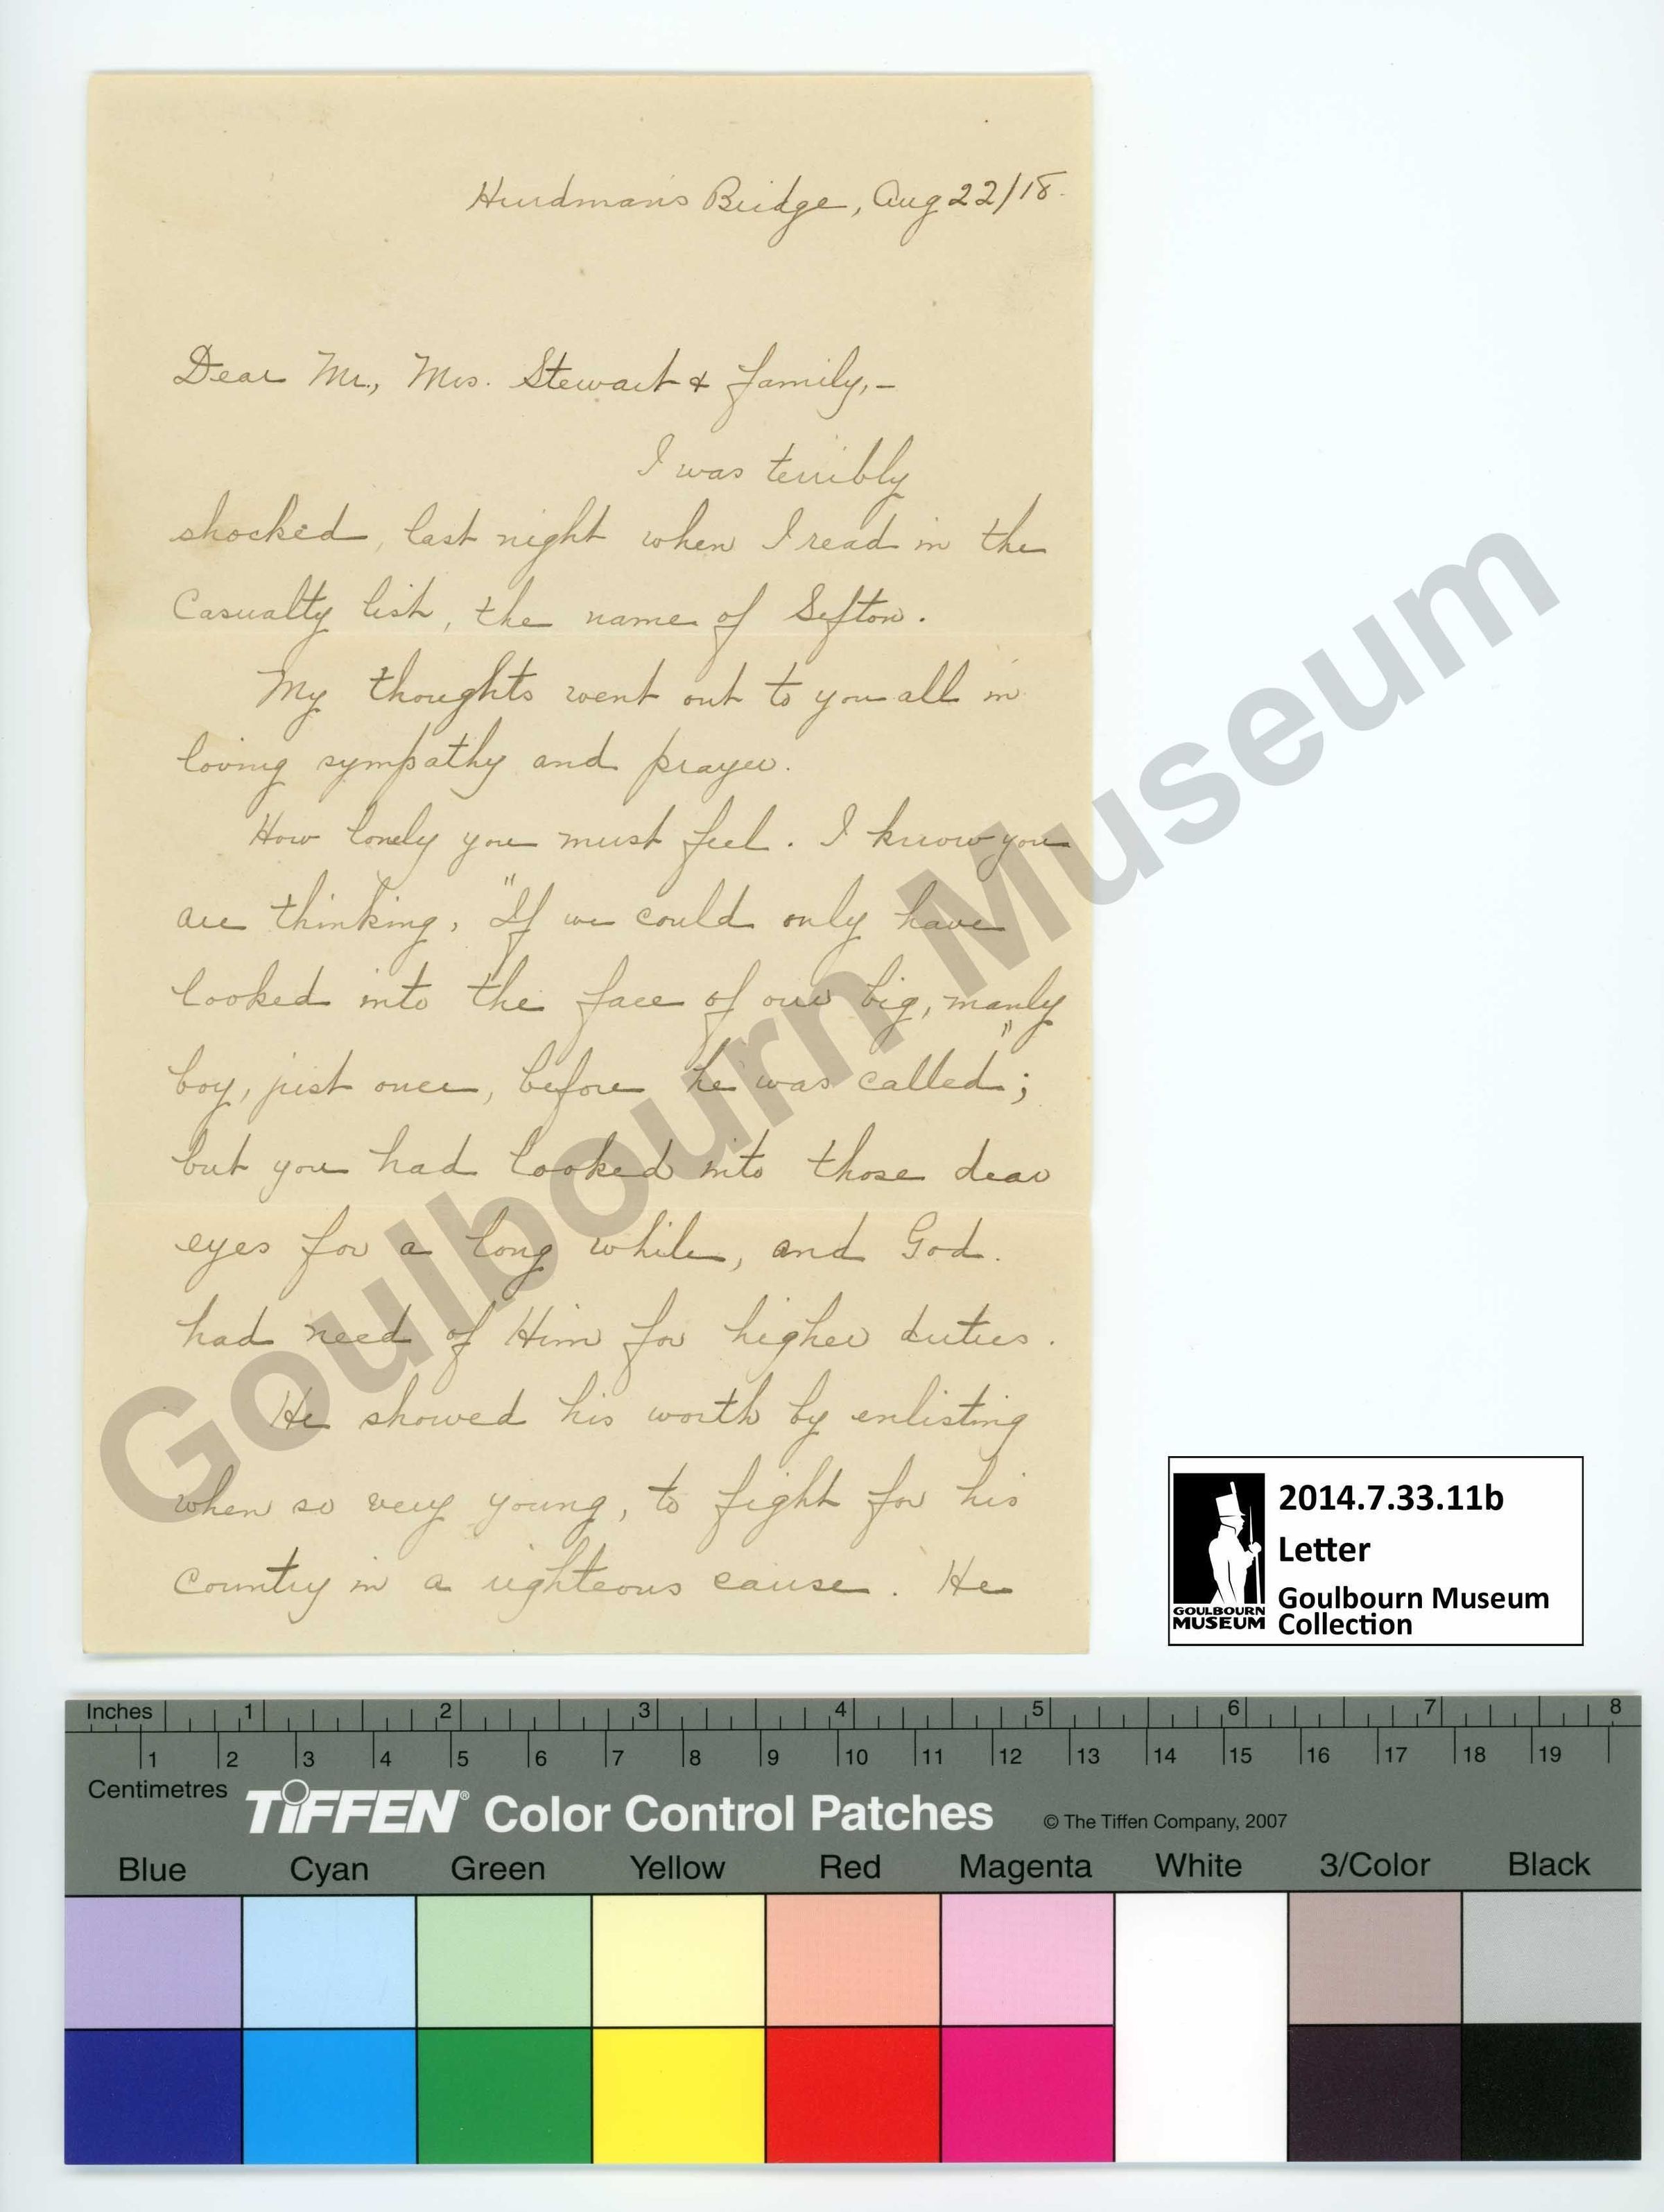 Hurdman's Bridge, Aug 22/18.
Dear Mr., Mrs. Stewart & family,-
I was terribly
shocked, last night when I read in the
Casualty list, the name of Sefton.
My thoughts went out to you all in
loving sympathy and prayer.
How lonely you must feel. I know you
are thinking, "If we could only have
looked into the face of our big, manly
boy, just once, before he was called";
but you had looked into those dear
eyes for a long while, and God.
had need of Him for higher duties.
He showed his worth by enlisting
when so very young, to fight for his
Country in a righteous cause. He
Goulbourn Museum
2014.7.33.11b
Letter
Goulbourn Museum
Collection
GOULBOURN
MUSEUM
Inches 1 2 3 4 5 6 7 8
1 2 3 4 5 6 7 8 9 10 11 12 13 14 15 16 17 18 19
Centimetres
TIFFEN® Color Control Patches © The Tiffen Company, 2007
Blue Cyan Green Yellow Red Magenta White 3/Color Black